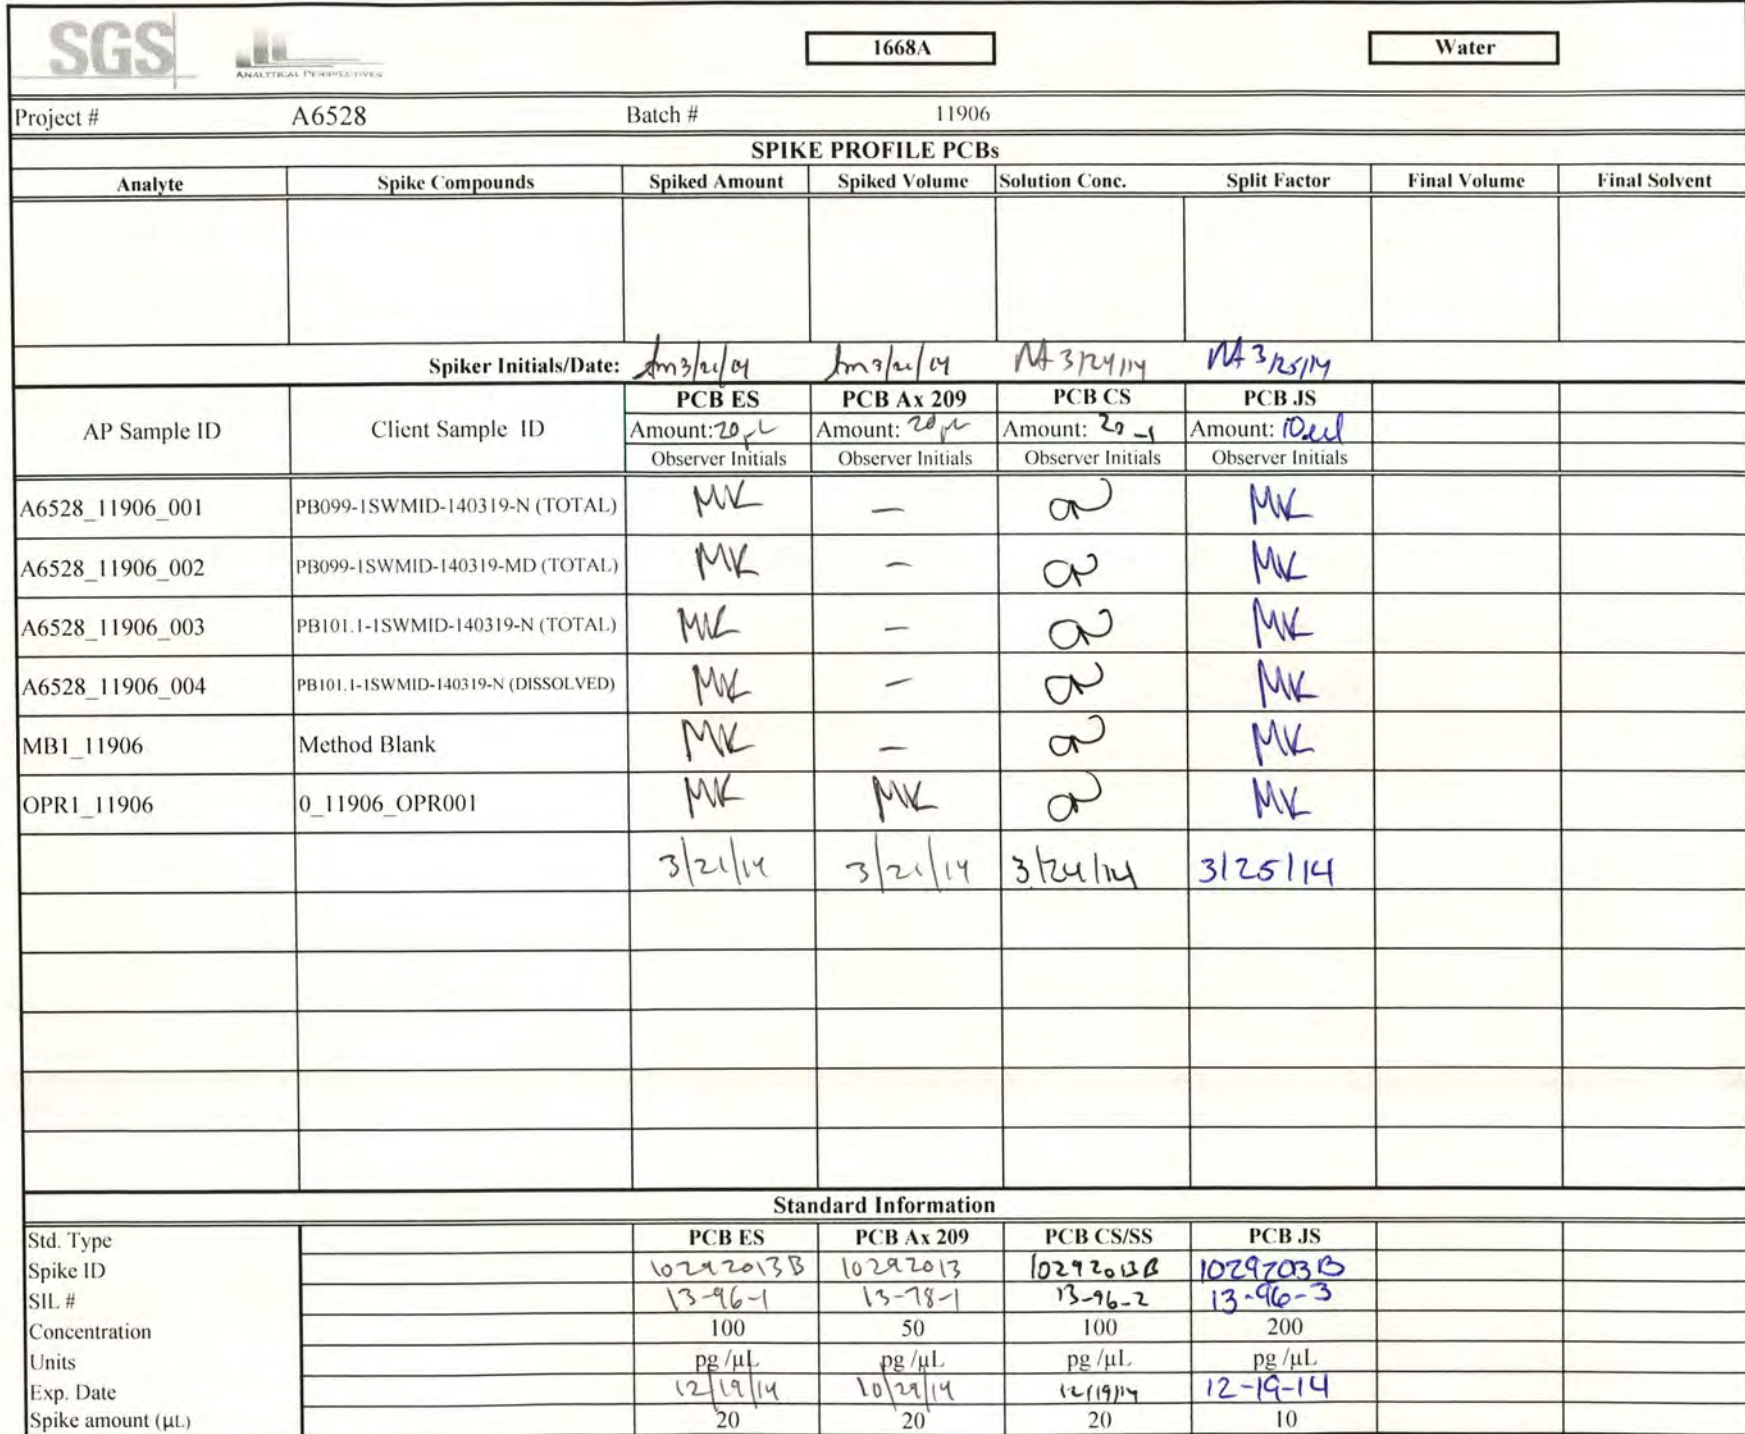 SGS ANALYTICAL PERSPECTIVES 1668A Water
Project # A6528 Batch # 11906
SPIKE PROFILE PCBs
Analyte Spike Compounds Spiked Amount Spiked Volume Solution Conc. Split Factor Final Volume Final Solvent
Spiker Initials/Date: 3/21/14 3/21/14 3/24/14 3/25/14
PCB ES PCB Ax 209 PCB CS PCB JS
AP Sample ID Client Sample ID Amount: 20 µL Amount: 20 µL Amount: 20 Amount: 10 µl
Observer Initials Observer Initials Observer Initials Observer Initials
A6528_11906_001 PB099-1SWMID-140319-N (TOTAL) MK — MK
A6528_11906_002 PB099-1SWMID-140319-MD (TOTAL) MK — MK
A6528_11906_003 PB101.1-1SWMID-140319-N (TOTAL) MK — MK
A6528_11906_004 PB101.1-1SWMID-140319-N (DISSOLVED) MK — MK
MB1_11906 Method Blank MK — MK
OPR1_11906 0_11906_OPR001 MK MK MK
3/21/14 3/21/14 3/24/14 3/25/14
Standard Information
Std. Type PCB ES PCB Ax 209 PCB CS/SS PCB JS
Spike ID 10292013B 10292013 10292013B 1029203B
SIL # 13-96-1 13-78-1 13-96-2 13-96-3
Concentration 100 50 100 200
Units pg/µL pg/µL pg/µL pg/µL
Exp. Date 12/19/14 10/29/14 12/19/14 12-19-14
Spike amount (µL) 20 20 20 10